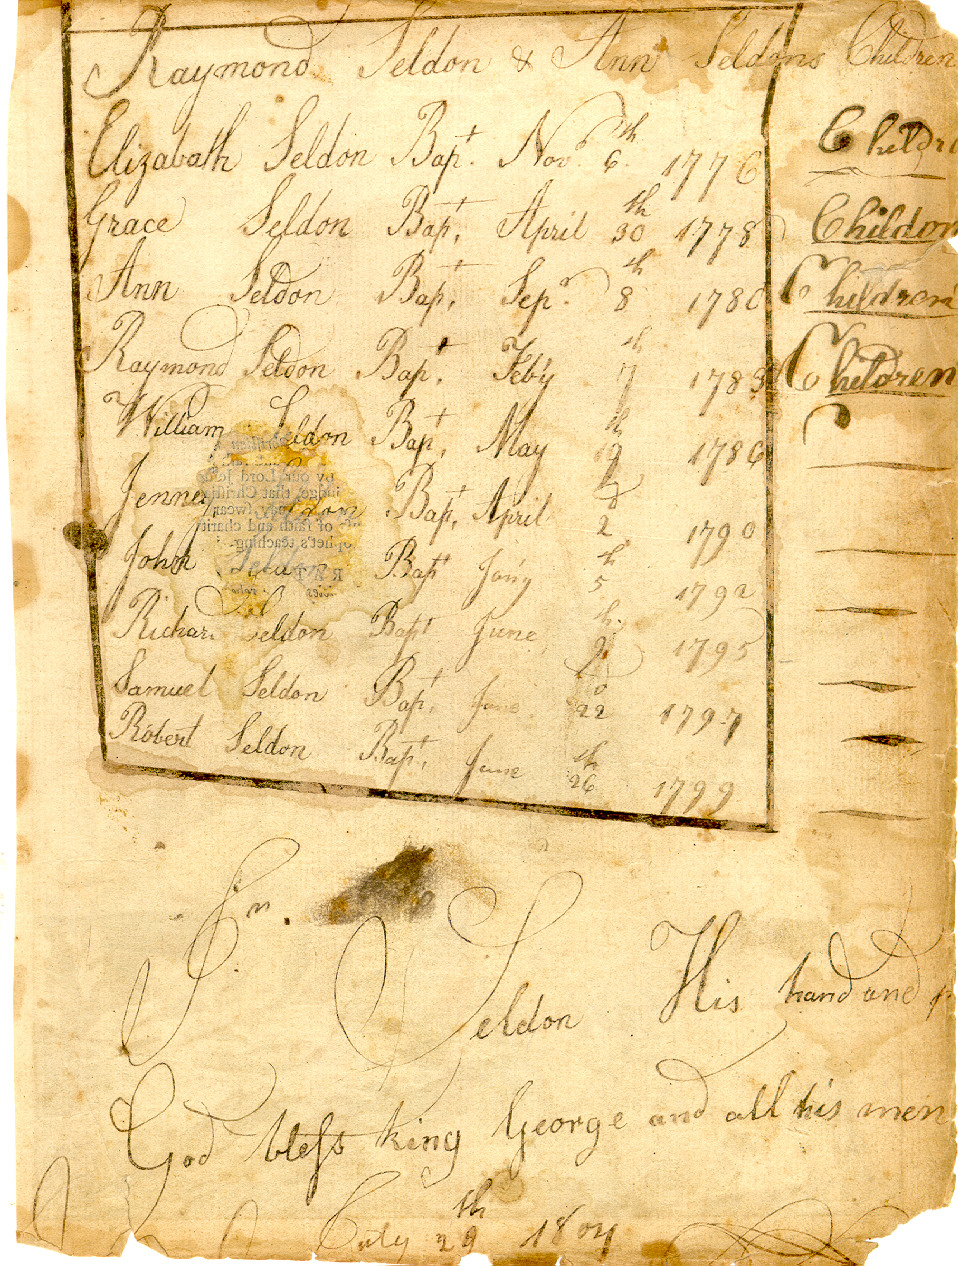 Raymond Seldon & Ann Seldons Children
Elizabath Seldon Bapt. Novr 6th 1776
Grace Seldon Bapt, April 30th 1778
Ann Seldon Bapt, Sepr 8th 1780
Raymond Seldon Bapt, Feby 7th 1783
William Seldon Bapt, May 19th 1786
Jenney Seldon Bapt, April 2d 1790
John Seldon Bapt Jany 5th 1792
Richard Seldon Bapt June 9th 1795
Samuel Seldon Bapt, June 22d 1797
Robert Seldon Bapt, June 26th 1799
Childre
Childorn
Children
Children
by our Lord Jesu
judge, that Christia
may swear
of faith and charity
ophet's teaching
Jn. Seldon His hand and p
God bless king George and all his men
July 29th 1804